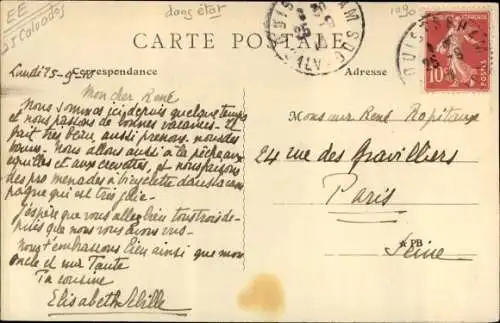 EE
Calvados
dans état
CARTE POSTALE
Correspondance
Adresse
OUISTREHAM
POSTES
10
Lundi
Mon cher René
Nous sommes ici depuis quelque temps
et nous passons de bonnes vacances. il
fait très beau, aussi prenons-nous des
bains. Nous allons aussi à la pêche aux
équilles et aux crevettes, et nous faisons
des promenades à bicyclette dans la cam
pagne qui est très jolie.
J'espère que vous allez bien tous trois de-
puis que nous vous avons vus.
Nous t'embrassons bien ainsi que mon
oncle et ma Tante
Ta cousine
Elisabeth
Monsieur René
24 rue des Gravilliers
Paris
PB
Seine